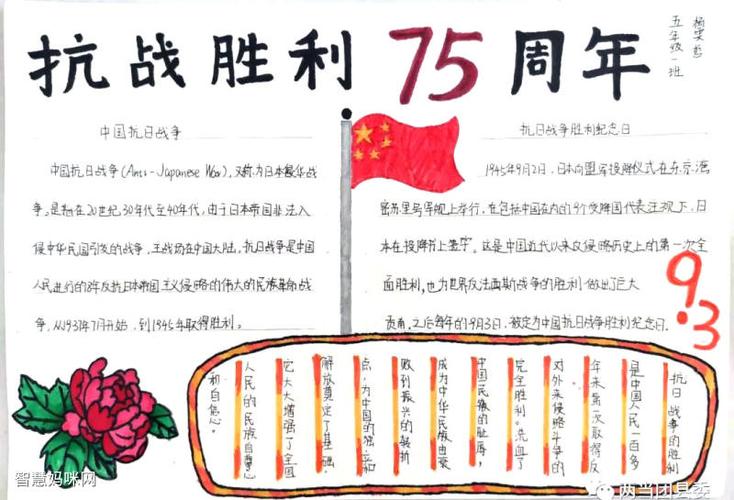 抗战胜利75周年
五年级一班
中国抗日战争
中国抗日战争(Anti-Japanese War),又称为日本侵华战
争。是指在20世纪30年代至40年代,由于日本帝国非法入
侵中华民国引发的战争,主战场在中国大陆。抗日战争是中国
人民进行的8年反抗日本帝国主义侵略的伟大的民族革命战
争,从1937年7月开始,到1945年取得胜利。
抗日战争胜利纪念日
1945年9月2日,日本向盟军投降仪式在东京湾
密苏里号军舰上举行,在包括中国在内的9个受降国代表注视下,日
本在投降书上签字。这是中国近代以来反侵略历史上的第一次全
面胜利,也为世界反法西斯战争的胜利做出了巨大
贡献。之后每年的9月3日,被定为中国抗日战争胜利纪念日.
9.3
抗日战争的胜利
是中国人民一百多
年来第一次取得反
对外来侵略斗争的
完全胜利。洗血了
中国民族的耻辱,
成为中华民族由衰
败到振兴的转折
点,为中国的独立和
解放奠定了基础。
它大大增强了全国
人民的民族自尊心
和自信心。
智慧妈咪网
两当团县委